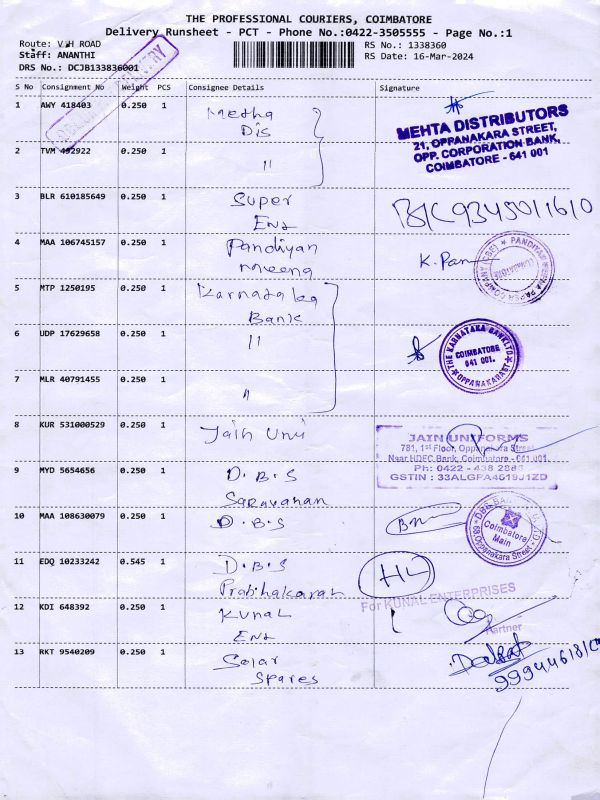 THE PROFESSIONAL COURIERS, COIMBATORE
Delivery Runsheet - PCT - Phone No.:0422-3505555 - Page No.:1
Route: V.H ROAD
Staff: ANANTHI
DRS No.: DCJB133836001
RS No.: 1338360
RS Date: 16-Mar-2024
DELIVERY
S No Consignment No Weight PCS Consignee Details Signature
1 AWY 418403 0.250 1 Metha
Dis
MEHTA DISTRIBUTORS
21, OPPANAKARA STREET,
OPP. CORPORATION BANK,
COIMBATORE - 641 001
2 TVM 492922 0.250 1 "
3 BLR 610185649 0.250 1 Super
Ent
9345011610
4 MAA 106745157 0.250 1 Pandiyan
K. Pan
COIMBATORE
5 MTP 1250195 0.250 1 Karnataka
Bank
6 UDP 17629658 0.250 1 "
THE KARNATAKA BANK LTD
COIMBATORE
641 001.
OPPANAKARA ST.
7 MLR 40791455 0.250 1 "
8 KUR 531000529 0.250 1 Jain Uni
JAIN UNIFORMS
781, 1st Floor, Oppanakara Street
Near HDFC Bank, Coimbatore - 641 001.
Ph: 0422 - 438 2886
GSTIN : 33ALGPA4619J1ZD
9 MYD 5654656 0.250 1 D.B.S
Saravanan
10 MAA 108630079 0.250 1 D.B.S
Coimbatore
Main
69, Oppanakara Street
11 EDQ 10233242 0.545 1 D.B.S
Prabhakaran
HL
For KUNAL ENTERPRISES
12 KDI 648392 0.250 1 Kunal
Ent
Partner
13 RKT 9540209 0.250 1 Solar
Spares